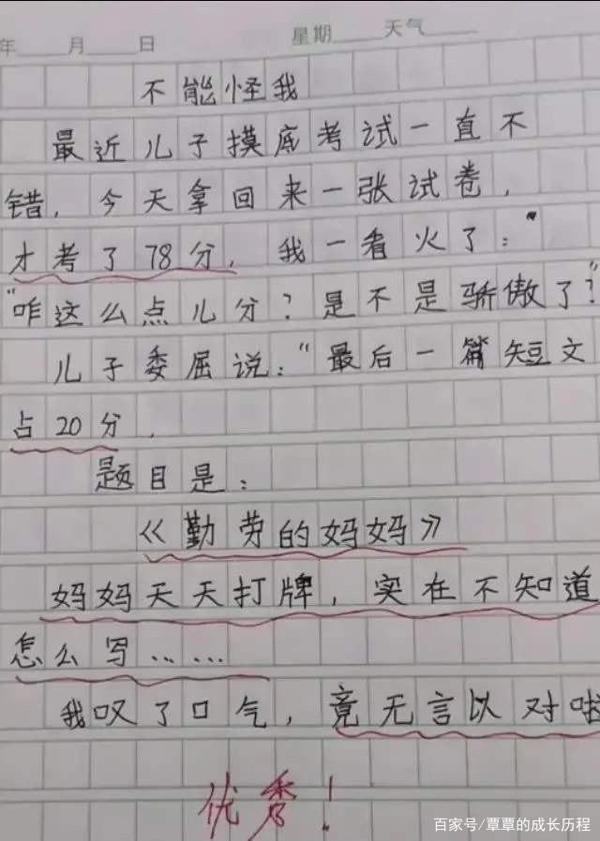 年 月 日 星期 天气
不能怪我
最近儿子摸底考试一直不
错，今天拿回来一张试卷，
才考了78分，我一看火了：
“咋这么点儿分？是不是骄傲了？”
儿子委屈说：“最后一篇短文
占20分，
题目是：
《勤劳的妈妈》
妈妈天天打牌，实在不知道
怎么写……
我叹了口气，竟无言以对啦
优秀！
百家号/覃覃的成长历程